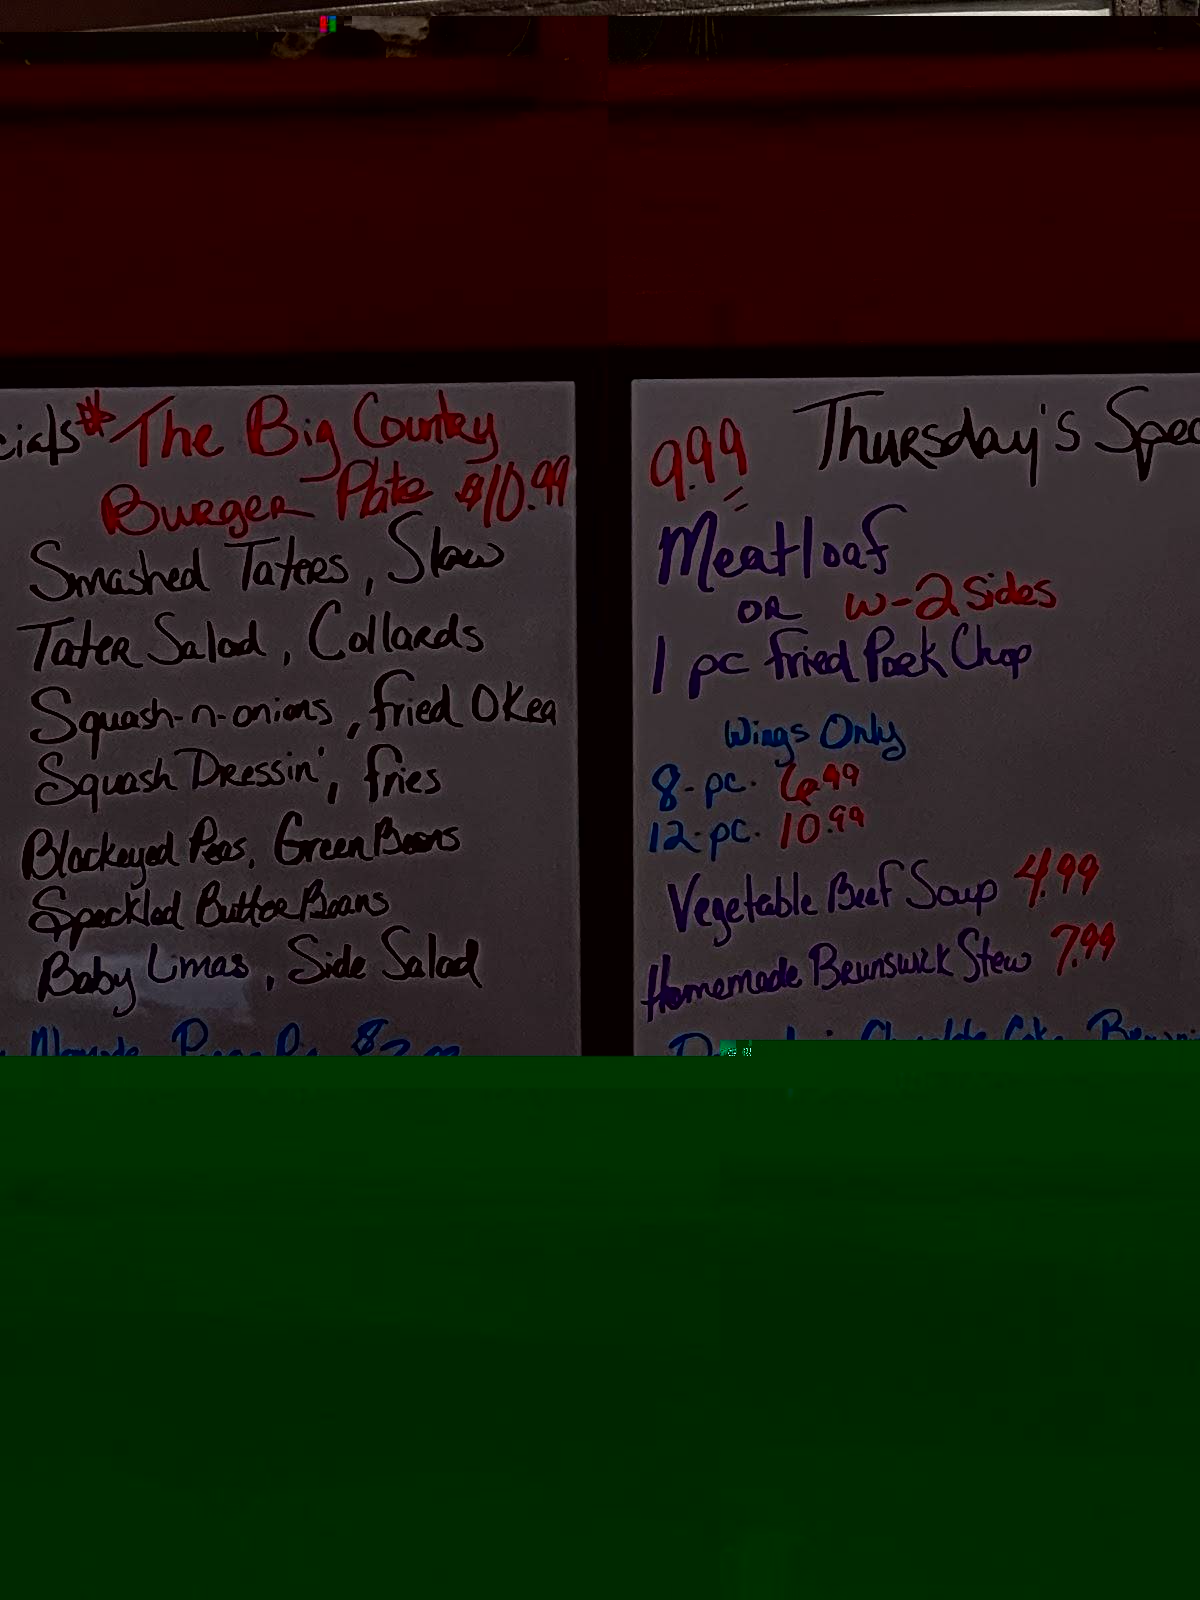 cials * The Big Country
Burger Plate $10.99
Smashed Taters, Slaw
Tater Salad, Collards
Squash-n-onions, fried Okra
Squash Dressin', fries
Blackeyed Peas, Green Beans
Speckled Butter Beans
Baby Limas, Side Salad
9.99 Thursday's Spec
Meatloaf
OR w-2 sides
1 pc fried Pork Chop
Wings Only
8-pc. 6.99
12-pc. 10.99
Vegetable Beef Soup 4.99
Homemade Brunswick Stew 7.99
Chocolate Cake